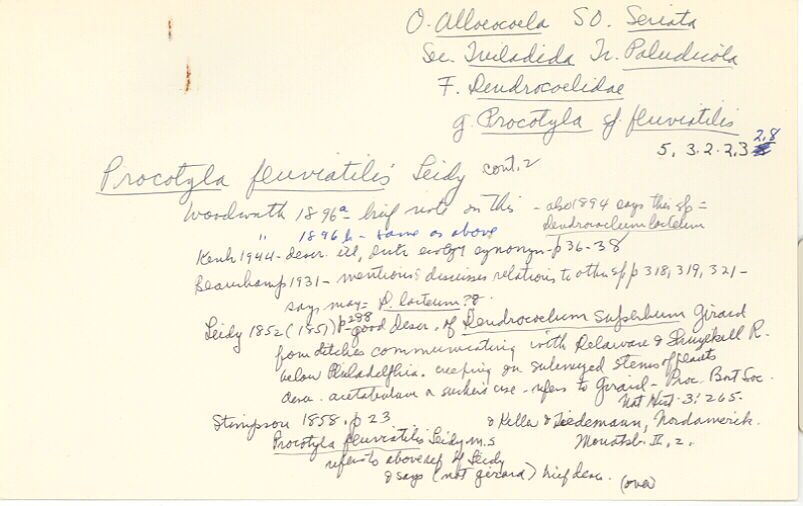 O. Alloeocoela SO. Seriata
Sec. Tricladida Tr. Paludicola
F. Dendrocoelidae
g. Procotyla sf. fluviatilis
2,8
5, 3.2.2.3
Procotyla fluviatilis Leidy cont. 2
Woodworth 1896a - brief note on this - also 1894 says this sp =
Dendrocoelum lacteum
" 1896b - same as above
Kenk 1944 - descr. ill, distr ecology synonym - p 36-38
Beauchamp 1931 - mentions & discusses relations to other sp p 318, 319, 321 -
says may = D. lacteum?
Leidy 1852 (1851) p-288 good Descr. of Dendrocoelum superbum Girard
from ditches communicating with Delaware & Schuylkill R.
below Philadelphia. creeping on submerged stems of plants
descr. acetabulum or suckers use - refers to Girard - Proc. Bost Soc.
Nat Hist. 3: 265.
Stimpson 1858. p 23 & Keller & Tiedemann, Nordamerik.
Procotyla fluviatilis Leidy m.s Monatsb. II, 2.
refers to above ref of Leidy
& says (not girard) brief descr. (over)